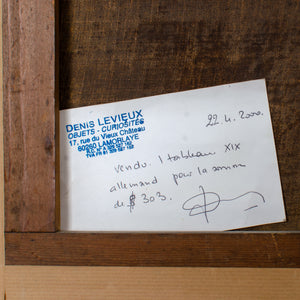 DENIS LEVIEUX
OBJETS - CURIOSITÉS
17, rue du Vieux Château
60260 LAMORLAYE
22.4.2000.
vendu 1 tableau XIX
allemand pour la somme
de $ 303.